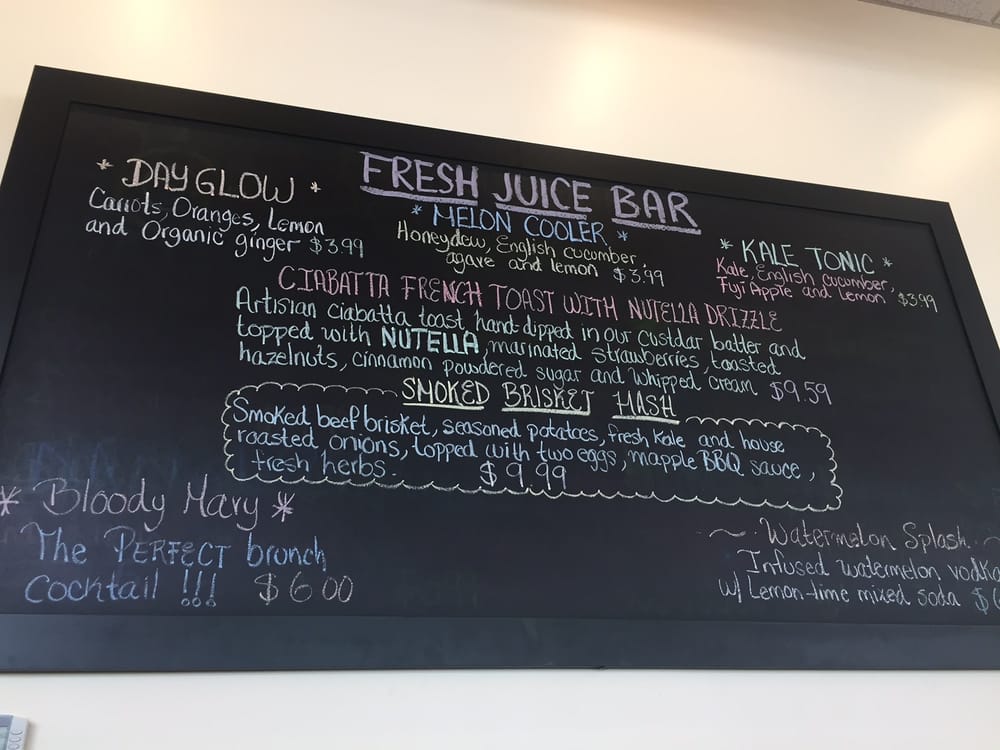 FRESH JUICE BAR
* DAY GLOW *
Carrots, Oranges, Lemon
and Organic ginger $3.99
* MELON COOLER *
Honeydew, English cucumber,
agave and lemon $3.99
* KALE TONIC *
Kale, English cucumber,
Fuji Apple and Lemon $3.99
CIABATTA FRENCH TOAST WITH NUTELLA DRIZZLE
Artisian ciabatta toast, hand-dipped in our custdar batter and
topped with NUTELLA, marinated strawberries, toasted
hazelnuts, cinnamon powdered sugar and whipped cream $9.59
SMOKED BRISKET HASH
Smoked beef brisket, seasoned potatoes, fresh kale and house
roasted onions, topped with two eggs, mapple BBQ sauce,
fresh herbs. $9.99
* Bloody Mary *
The PERFECT brunch
cocktail !!! $6.00
~ Watermelon Splash ~
Infused watermelon vodka
w/ Lemon-lime mixed soda $